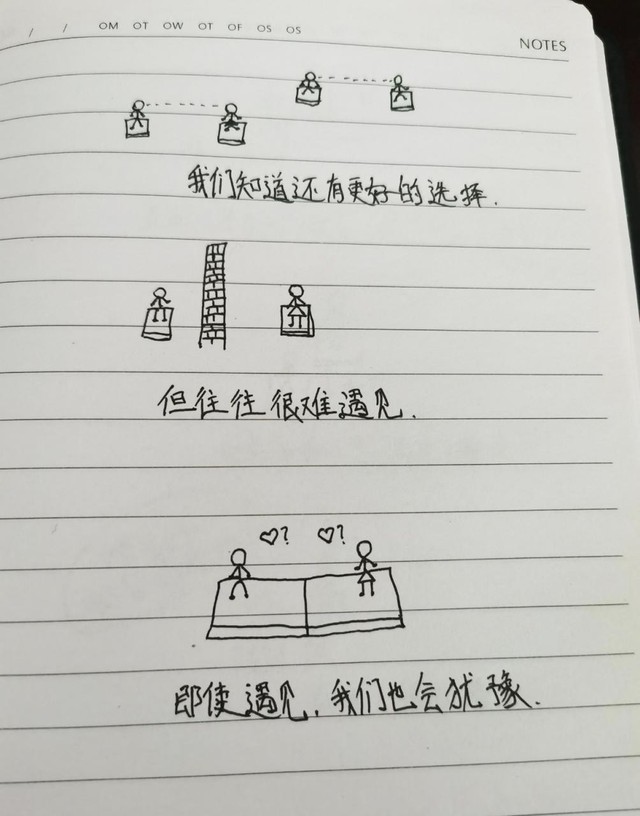 / / OM OT OW OT OF OS OS
NOTES
我们知道还有更好的选择.
但往往很难遇见.
♡? ♡?
即使遇见,我们也会犹豫.